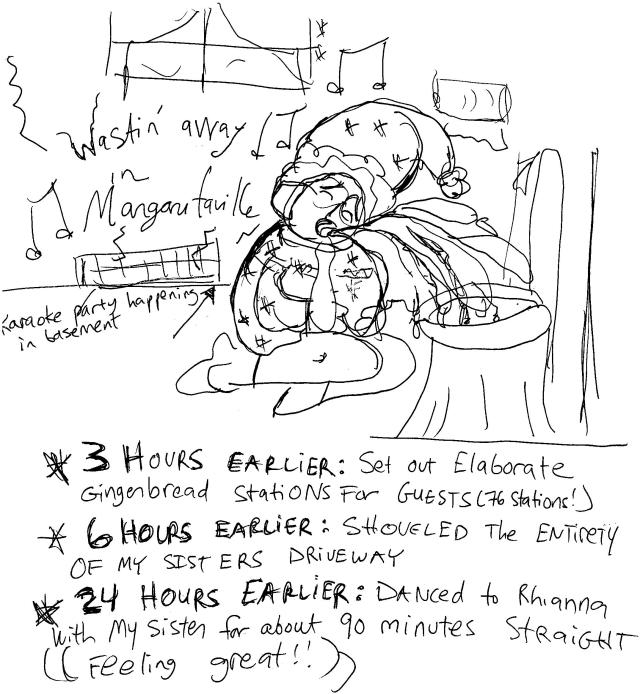 Wastin' away
in
Margaritaville
Karaoke party happening
in basement
3 HOURS EARLIER: Set out Elaborate
Gingerbread Stations For GUESTS (76 Stations!)
6 HOURS EARLIER: SHOVELED The ENTIRETY
OF MY SISTERS DRIVEWAY
24 HOURS EARLIER: DANCED to Rhianna
with My Sister for about 90 minutes STRAIGHT
((Feeling great!!))